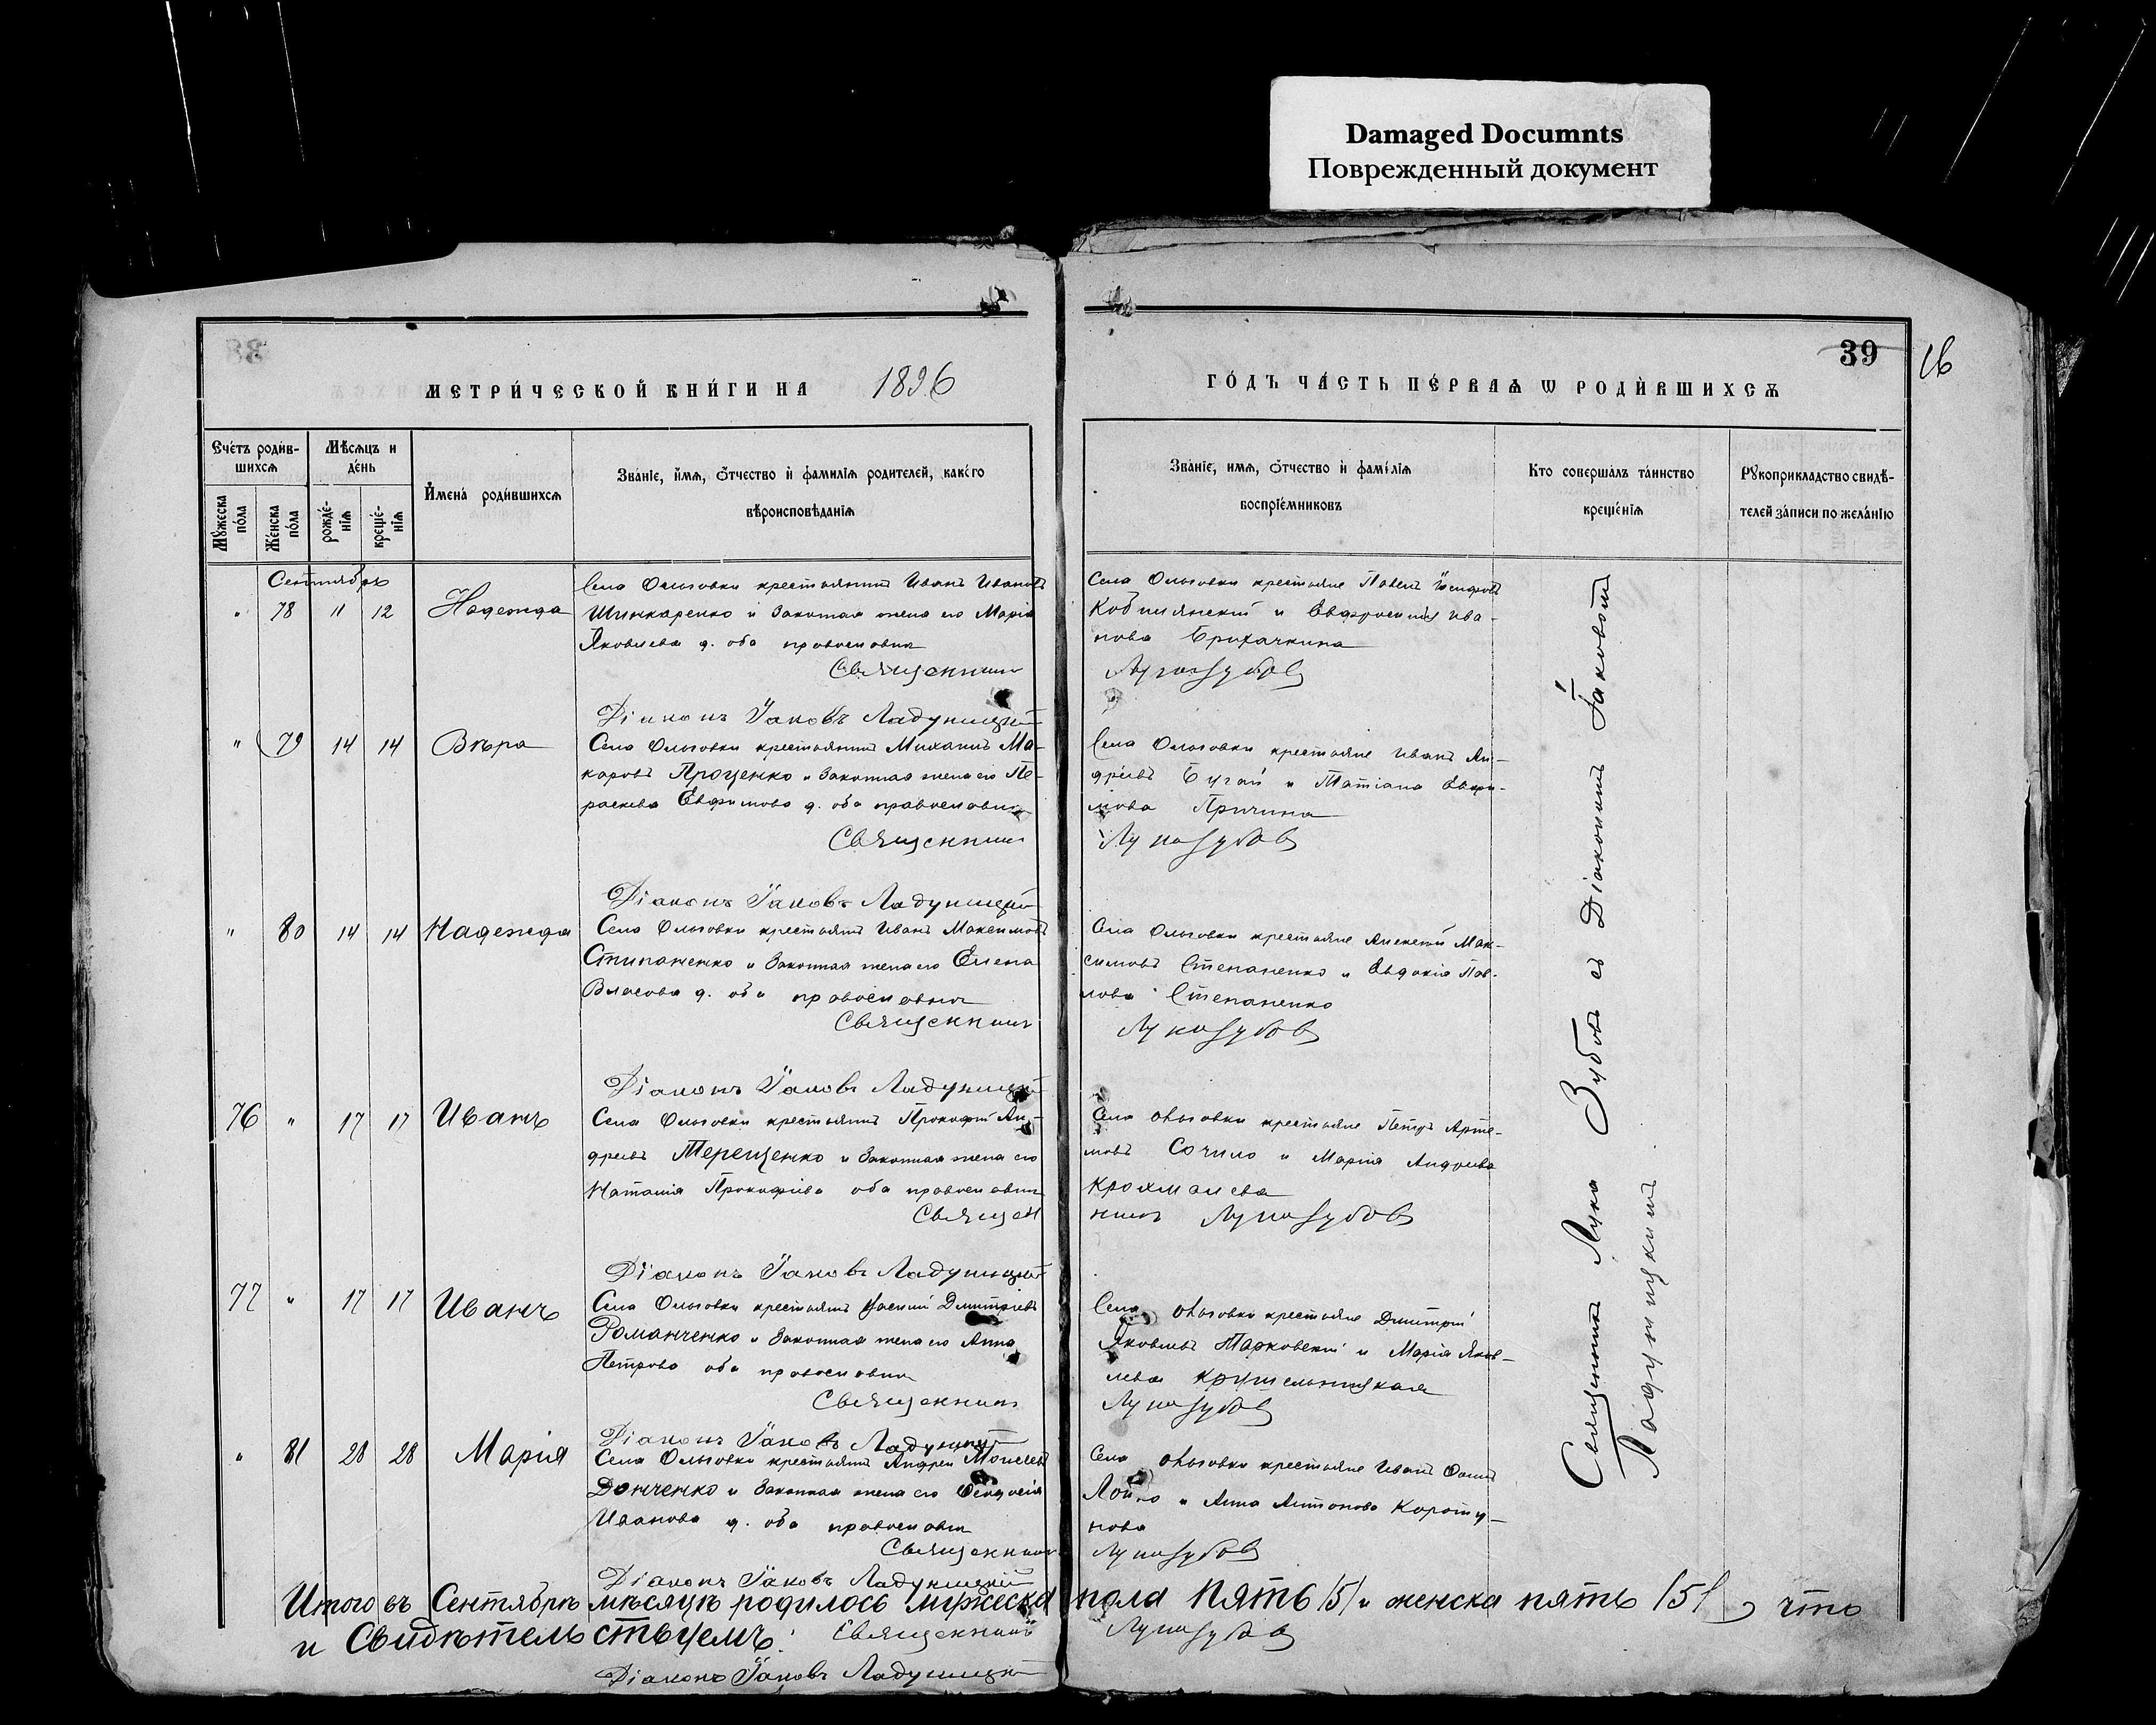 Damaged Documnts
Поврежденный документ
39
16
МЕТРИ́ЧЕСКОЙ КНИ́ГИ НА 1896
ГО́ДЪ ЧА́СТЬ ПЕ́РВАѦ Ѡ РОДИ́ВШИХСѦ
Счéтъ роди́в-
шихсѧ
Мѣ́сѧцъ и
де́нь
Мꙋ́жеска
по́ла
Же́нска
по́ла
рожде́-
нїѧ
креще́-
нїѧ
И҆мена̀ роди́вшихсѧ
Зва́нїе, и҆́мѧ, ѻ҆́тчество и҆ фамилїѧ родителей, како́го
вѣроисповѣ́данїѧ
Зва́нїе, имѧ, ѻ҆́тчество и҆ фами́лїѧ
воспрїе́мниковъ
Кто соверша́лъ та́инство
креще́нїѧ
Рꙋкоприкладство свидѣ́-
телей за́писи по жела́нїю
Сентябрь
" 78 11 12 Надежда
Села Ольговки крестьянинъ Иванъ Ивановъ
Шинкаренко и законная жена его Марія
Яковлева д. оба православны
Священникъ
Діаконъ Іаковъ Ладужицкій
Села Ольговки крестьяне Павелъ Іосифовъ
и Евфросинія Ива-
нова
Лука Зубовъ
" 79 14 14 Вѣра
Села Ольговки крестьянинъ Михаилъ Ма-
каровъ Проценко и законная жена его Па-
раскева Евфимова д. оба православны
Священникъ
Діаконъ Іаковъ Ладужицкій
Села Ольговки крестьяне Иванъ Ан-
дреевъ Бугай и Татіана Евфи-
мова Причина
Лука Зубовъ
" 80 14 14 Надежда
Села Ольговки крестьянинъ Иванъ Максимовъ
Стипаненко и законная жена его Елена
Власова д. оба православны
Священникъ
Діаконъ Іаковъ Ладужицкій
Села Ольговки крестьяне Алексѣй Мак-
симовъ Степаненко и Евдокія Пав-
лова Степаненко
Лука Зубовъ
76 " 17 17 Иванъ
Села Ольговки крестьянинъ Прокофій Ан-
дреевъ Терещенко и законная жена его
Наталія Прокофіева оба православны
Священ
Діаконъ Іаковъ Ладужицкій
Села Ольговки крестьяне Петръ Арте-
мовъ Сочило и Марія Андреева
Крохмалева
никъ Лука Зубовъ
77 " 17 17 Иванъ
Села Ольговки крестьянинъ Василій Дмитріевъ
Романченко и законная жена его Анна
Петрова оба православны
Священникъ
Діаконъ Іаковъ Ладужицкій
Села Ольговки крестьяне Дмитрій
Яковлевъ Тарковскій и Марія Яков-
лева Крушельницкая
Лука Зубовъ
" 81 28 28 Марія
Села Ольговки крестьянинъ Андрей Моисеевъ
Донченко и законная жена его Ѳеодосія
Иванова д. оба православны
Священникъ
Діаконъ Іаковъ Ладужицкій
Села Ольговки крестьяне Иванъ
Лойко и Анна Антонова Короту-
нова
Лука Зубовъ
Священникъ Лука Зубовъ съ Діакономъ Іаковомъ
Ладужицкимъ
Итого въ Сентябрѣ мѣсяцѣ родилось мужеска пола пять /5/ и женска пять /5/, что
и свидѣтельствуемъ: Священникъ Лука Зубовъ
Діаконъ Іаковъ Ладужицкій